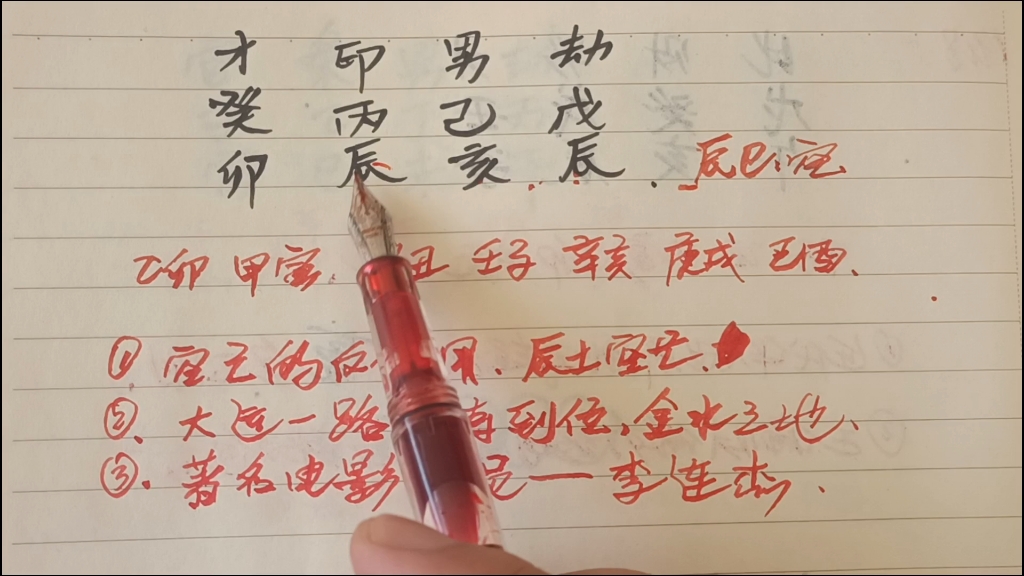 才 印 男 劫
癸 丙 己 戊
卯 辰 亥 辰 . 辰巳空
乙卯 甲寅 丑 壬子 辛亥 庚戌 己酉、
① 空亡的反 用、辰土空亡、
②、大运一路 到位,金水之地、
③、著名电影 ——李连杰、